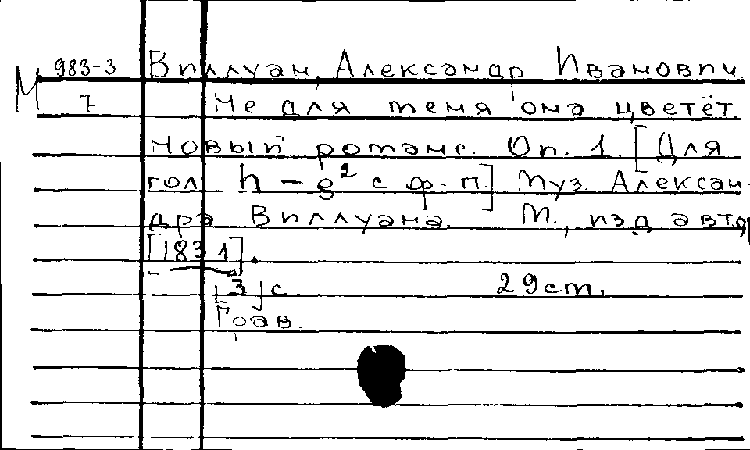 М 983-3 Виллуан, Александр Иванович.
7 Не для меня она цветёт.
Новый романс. Оп. 1. [Для
гол. h – g² с ф.-п.] Муз. Алексан-
дра Виллуана. М., изд. автор,
[1831].
[3] с. 29 cm.
Грав.